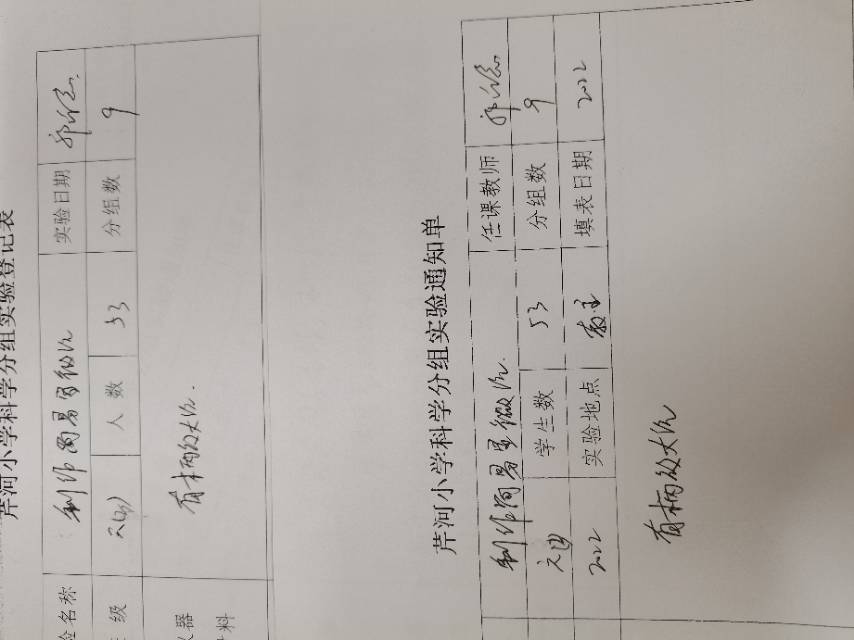 芹河小学科学分组实验登记表
验名称 制作简易显微镜 实验日期
级 六(四) 人数 53 分组数 9
器
料 有柄放大镜.
芹河小学科学分组实验通知单
制作简易显微镜. 任课教师
六四 学生数 53 分组数 9
2022 实验地点 教室 填表日期 2022
有柄放大镜